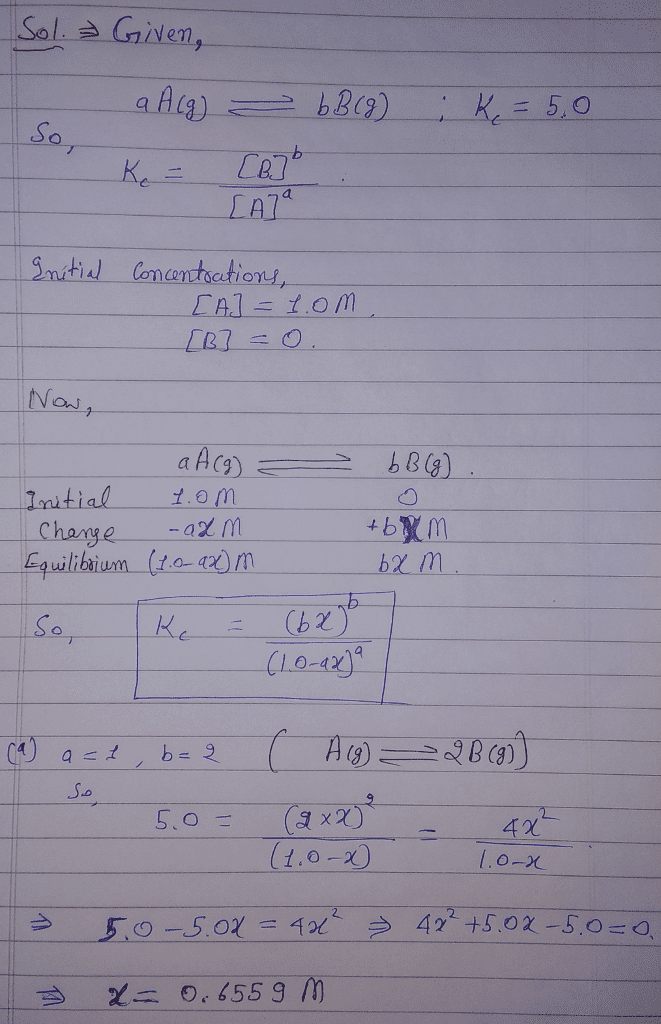 Sol. ⇒ Given,
aA(g) ⇌ bB(g) ; Kc = 5.0
So,
Kc = [B]^b / [A]^a .
Initial Concentrations,
[A] = 1.0M.
[B] = 0.
Now,
aA(g) ⇌ bB(g).
Initial 1.0M 0
Change -ax M +bxM
Equilibrium (1.0-ax)M bx M.
So, Kc = (bx)^b / (1.0-ax)^a
(a) a=1, b=2 ( A(g) ⇌ 2B(g))
So,
5.0 = (2×x)^2 / (1.0-x) = 4x^2 / 1.0-x .
⇒ 5.0 -5.0x = 4x^2 ⇒ 4x^2 +5.0x -5.0=0.
⇒ x = 0.6559 M